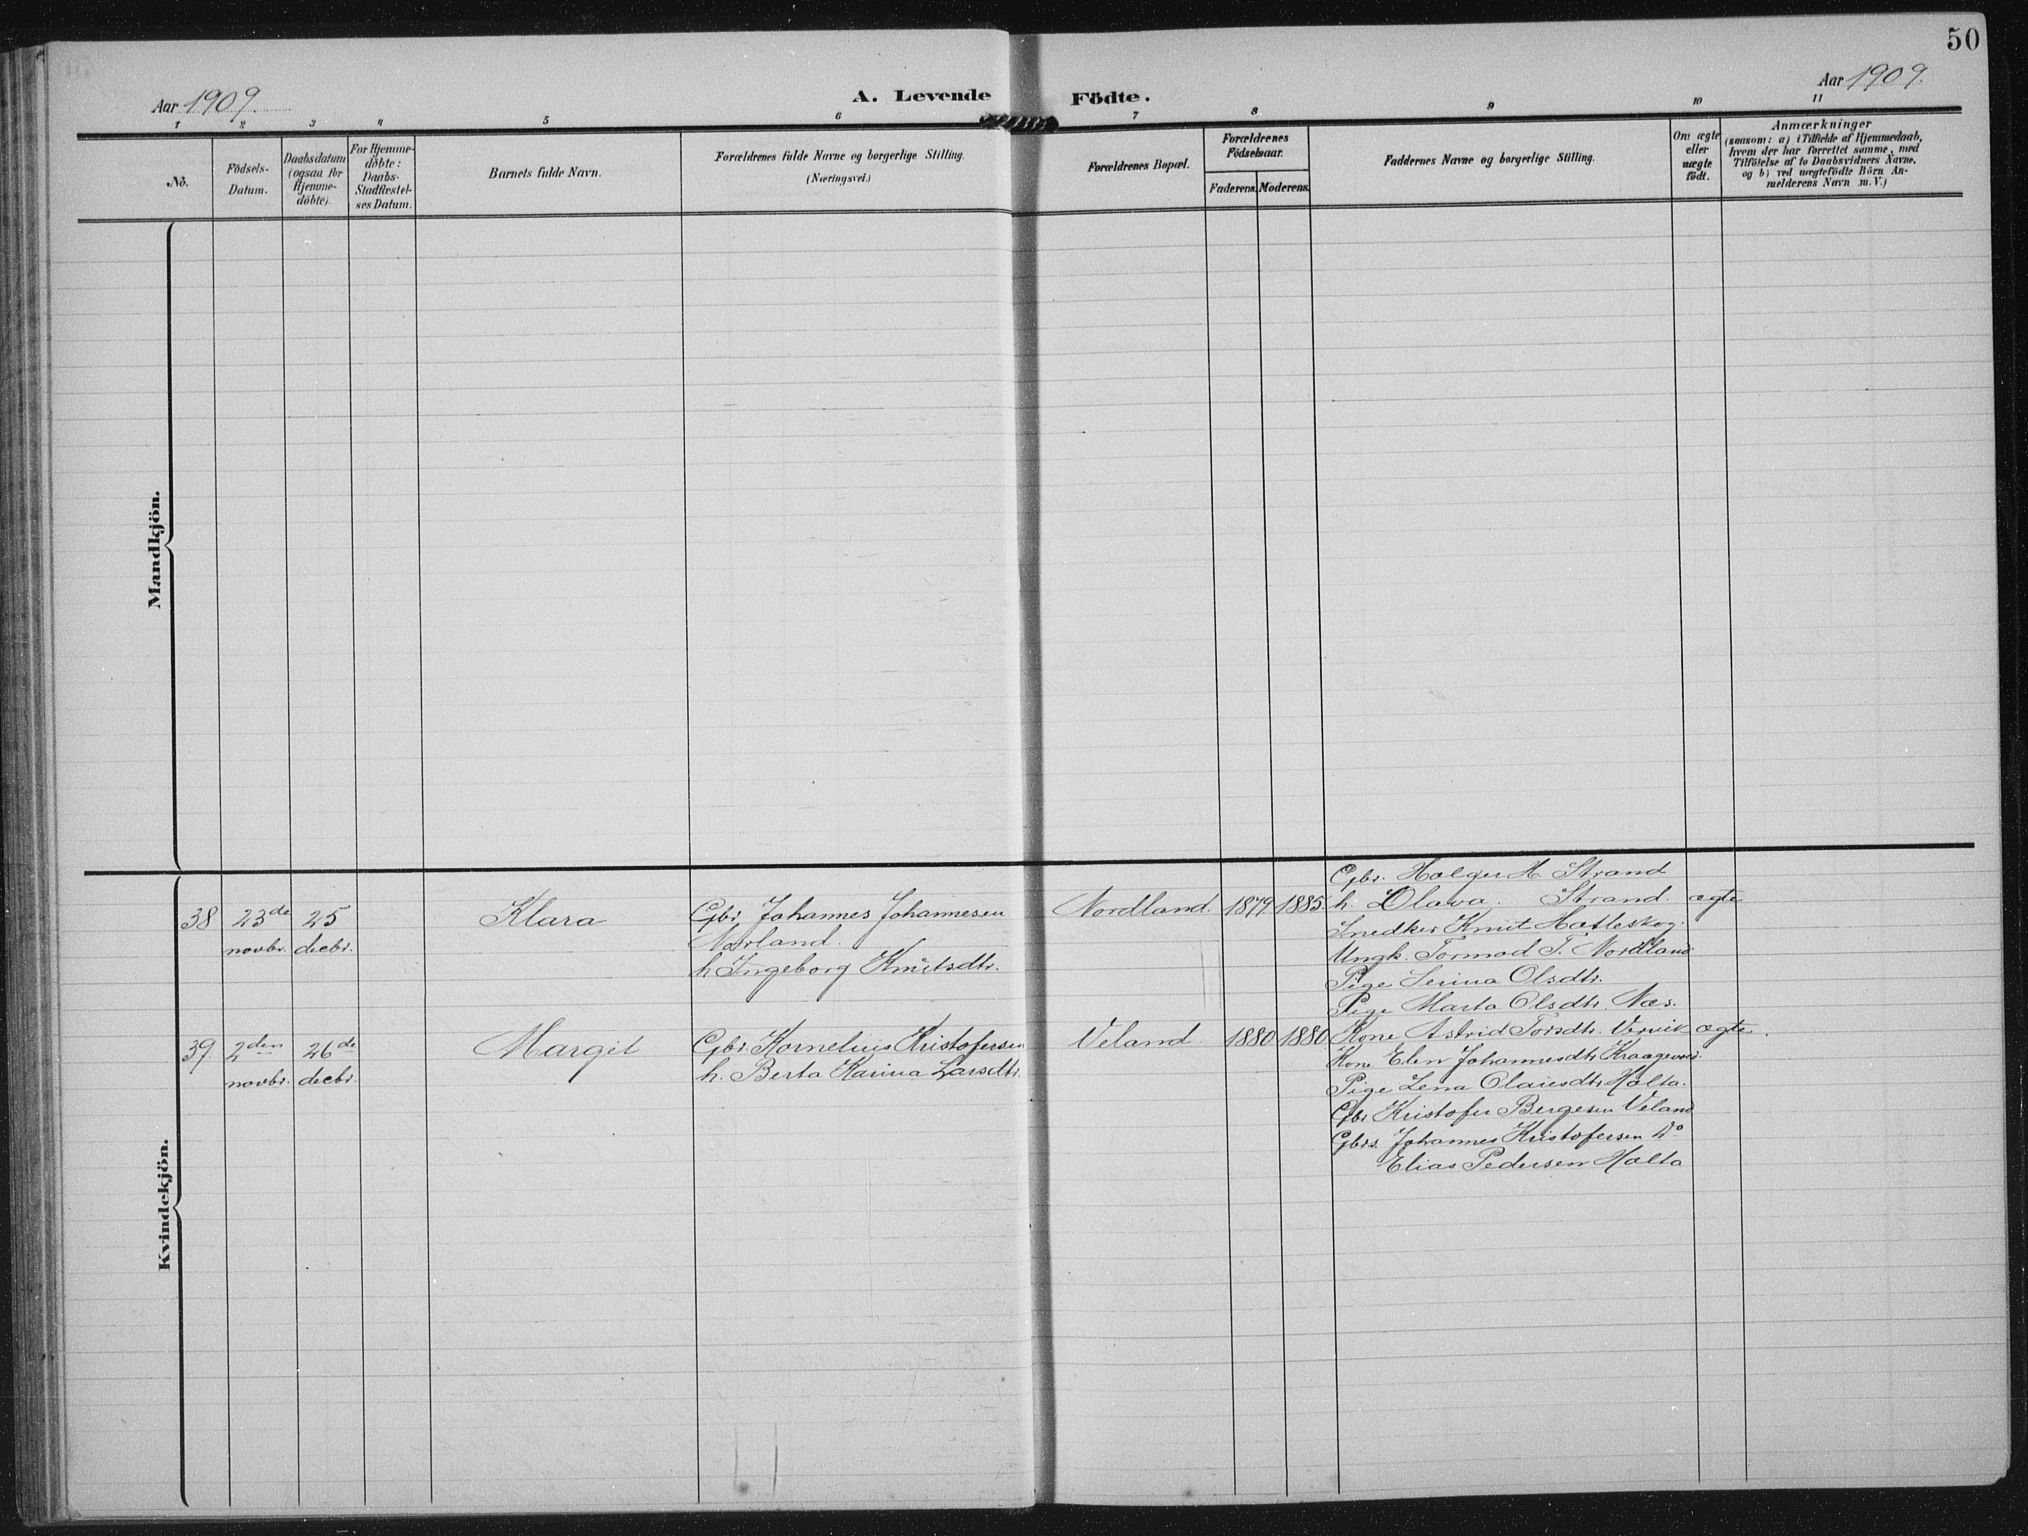 50
Aar 1909.
A. Levende Födte.
Aar 1909.
1 2 3 4 5 6 7 8 9 10 11
No.
Födsels-
Datum.
Daabsdatum
(ogsaa for
Hjemme-
døbte).
For Hjemme-
døbte:
Daabs-
Stadfæstel-
ses Datum.
Barnets fulde Navn.
Forældrenes fulde Navne og borgerlige Stilling.
(Næringsvei.)
Forældrenes Bopæl.
Forældrenes
Fødselsaar.
Faderens. Moderens.
Faddernes Navne og borgerlige Stilling.
Om ægte
eller
uægte
født.
Anmærkninger
(saasom: a) i Tilfælde af Hjemmedaab,
hvem der har forrettet samme, med
Tilføielse af to Daabsvidners Navne,
og b) ved uægtefödte Börn An-
melderens Navn m. V.)
Mandkjön.
Kvindekjön.
38
23de
novbr.
25
decbr.
Klara
Gbr. Johannes Johannesen
Norland.
h. Ingeborg Knutsdtr.
Nordland.
1879
1885.
Gbr. Holger H. Strand
h. Olava. Strand.
Snedker Knut Hatleskog.
Ungk. Tormod T. Nordland
Pige Serina Olsdtr.
Pige Marta Olsdtr. Næs.
ægte
39
2den
novbr.
26de
decbr.
Margit
Gbr. Kornelius Kristofersen
h. Berta Karina Larsdtr.
Veland
1880
1880
Kone Astrid Torsdtr.
Kone Elen Johannesdtr
Pige Lena Olausdtr Holta.
Gbr Kristofer Bergesen Veland
Gbrs. Johannes Kristofersen Do
Elias Pedersen Holta
ægte.